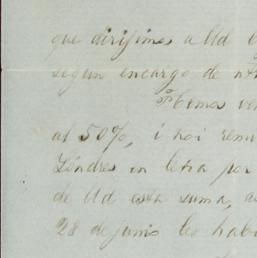 que dirijimos a Ud
segun encargo de
Hemos
al 50%, i hoi
Lóndres in letra por
de Ud esta suma,
28 de junio les